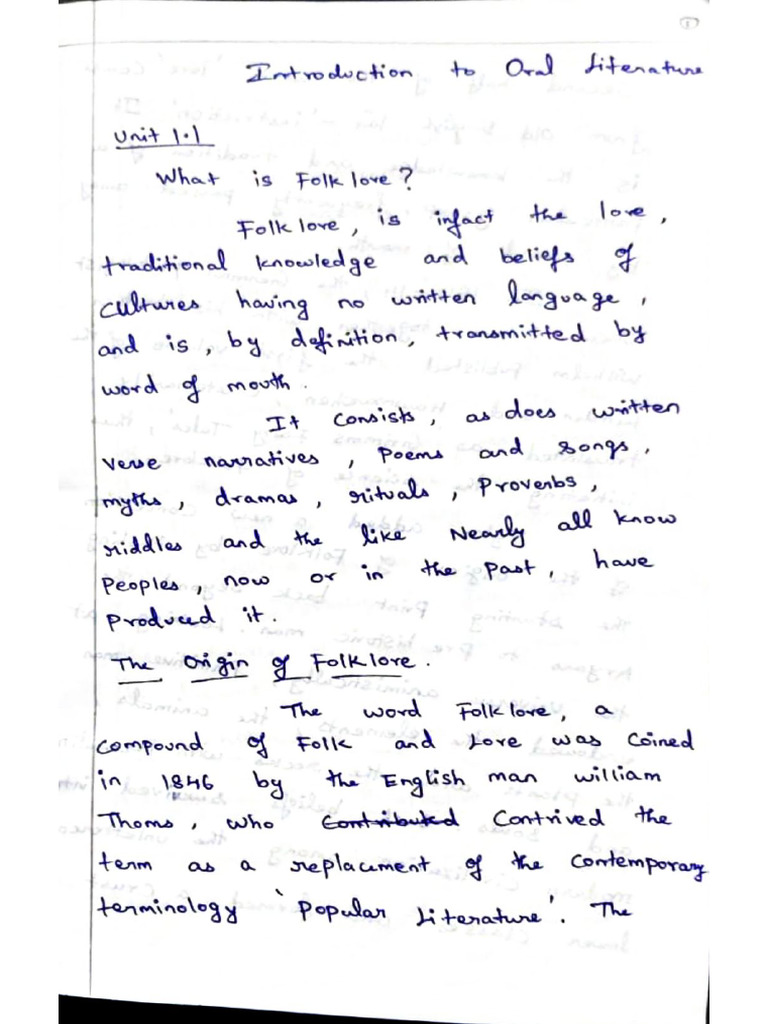 1
Introduction to Oral Literature
Unit 1.1
What is Folk lore?
Folk lore, is infact the lore,
traditional knowledge and beliefs of
cultures having no written language,
and is, by definition, transmitted by
word of mouth.
It consists, as does written
verse narratives, Poems and songs,
myths, dramas, rituals, Proverbs,
riddles and the like Nearly all know
Peoples, now or in the past, have
Produced it.
The Origin of Folklore.
The word Folk lore, a
compound of Folk and Lore was coined
in 1846 by the English man william
Thoms, who Contributed Contrived the
term as a replacement of the contemporary
terminology 'Popular Literature'. The